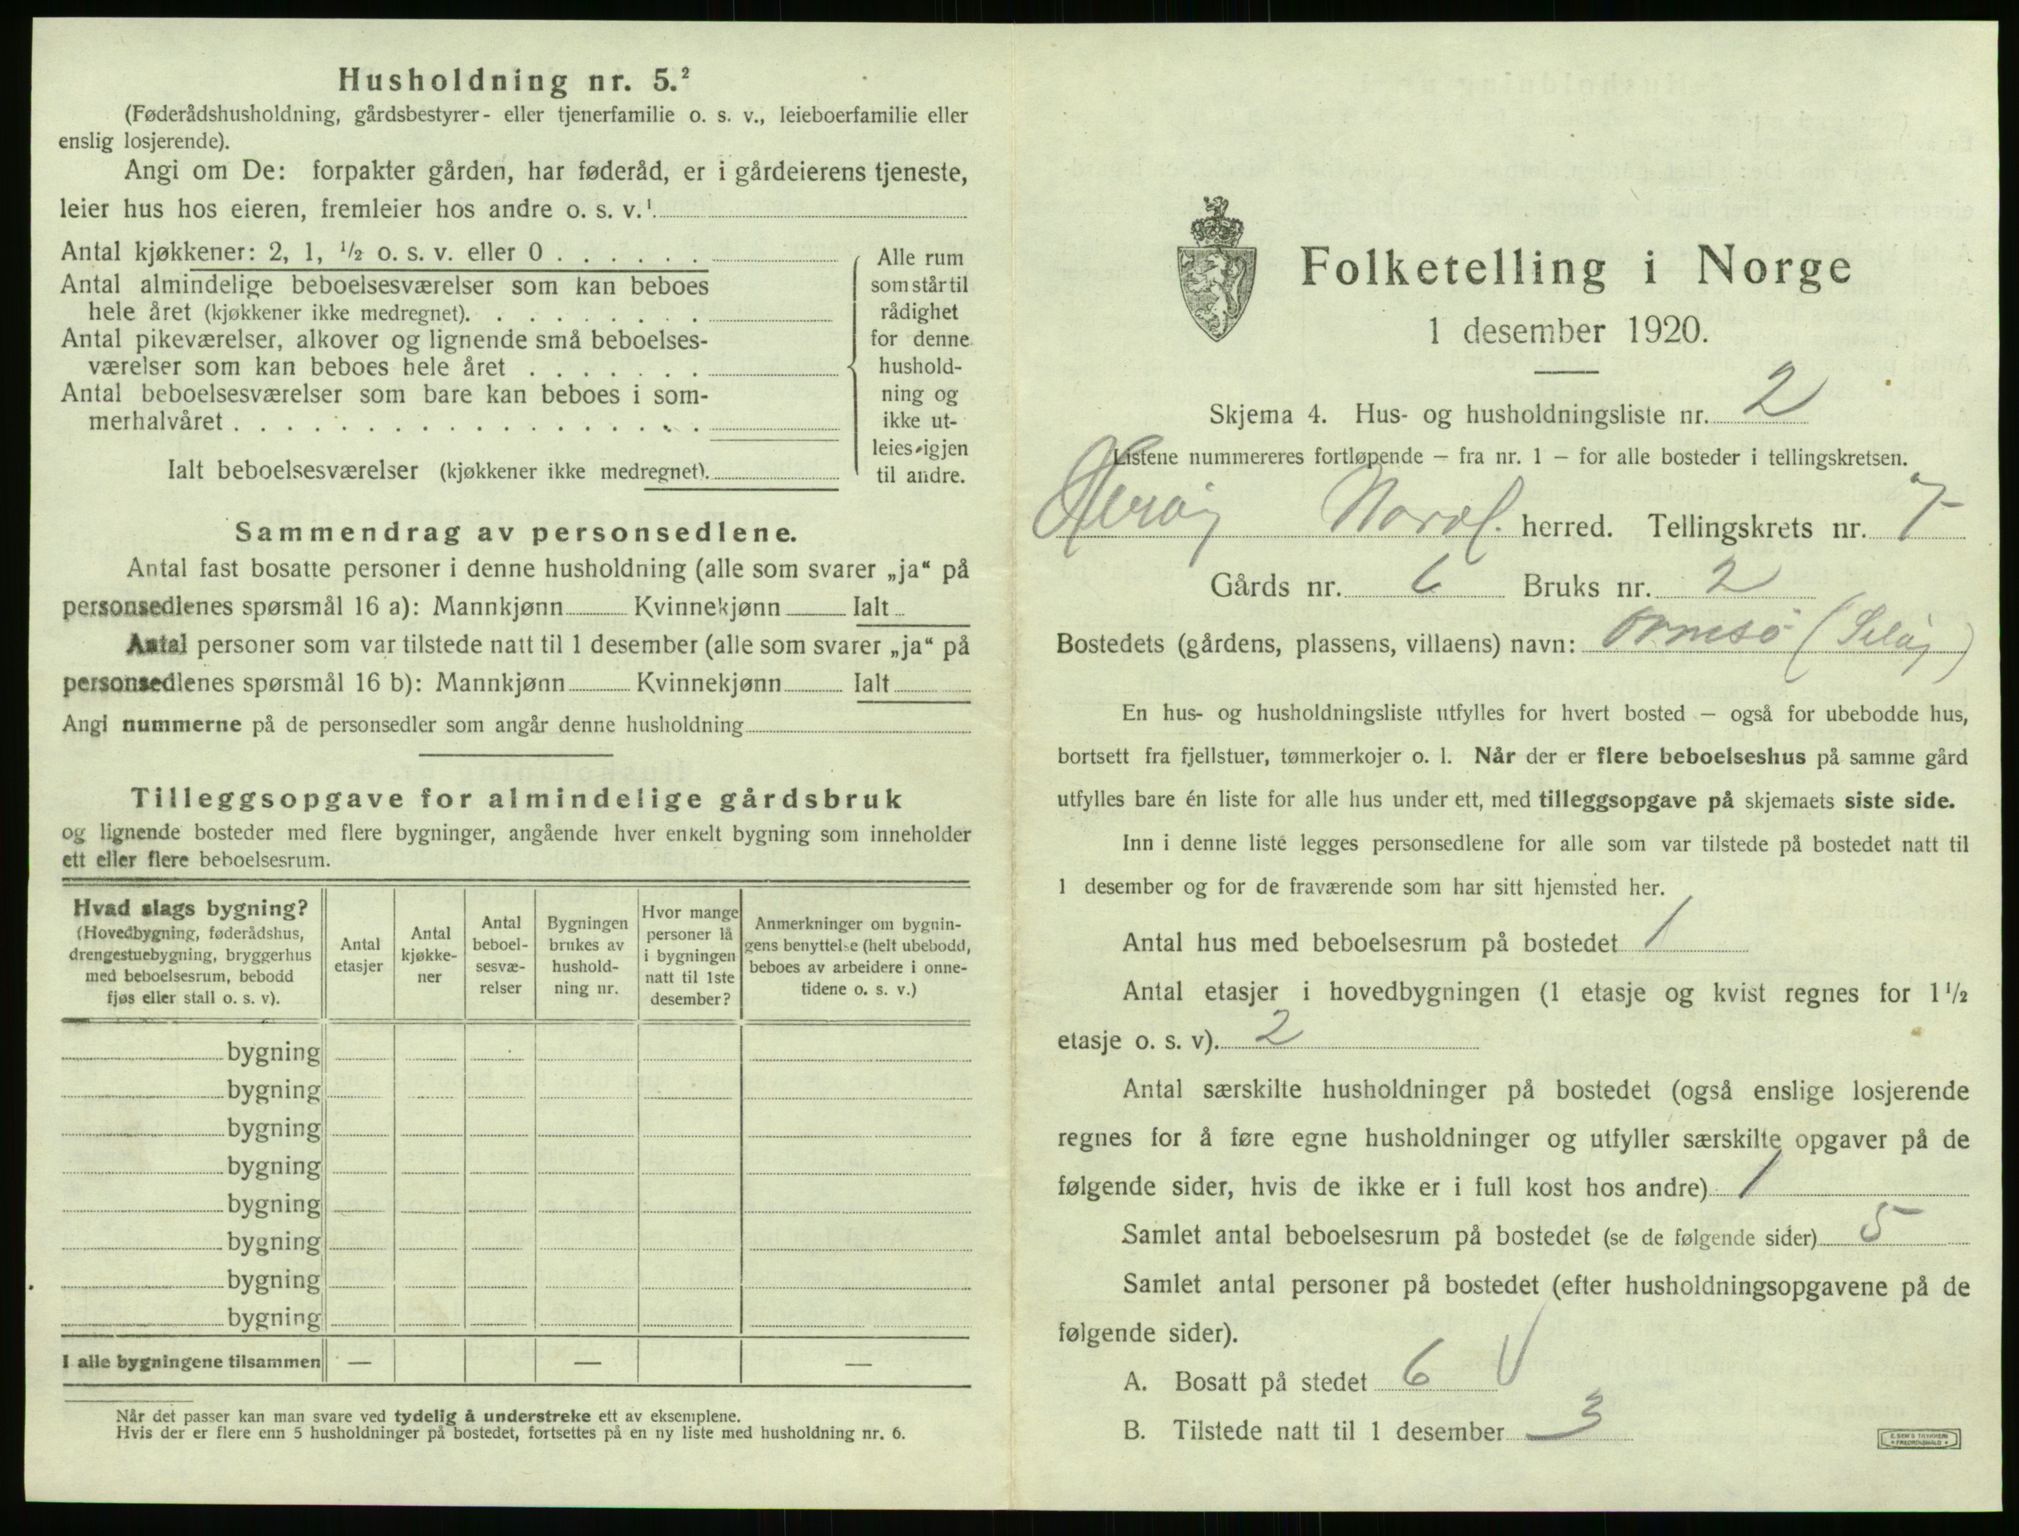 Husholdning nr. 5.²
(Føderådshusholdning, gårdsbestyrer- eller tjenerfamilie o. s. v., leieboerfamilie eller
enslig losjerende).
Angi om De: forpakter gården, har føderåd, er i gårdeierens tjeneste,
leier hus hos eieren, fremleier hos andre o. s. v.¹
Antal kjøkkener: 2, 1, ½ o. s. v. eller 0 . . . . . .
Antal almindelige beboelsesværelser som kan beboes
hele året (kjøkkener ikke medregnet). . . . . . . . .
Antal pikeværelser, alkover og lignende små beboelses-
værelser som kan beboes hele året . . . . . . .
Antal beboelsesværelser som bare kan beboes i som-
merhalvåret . . . . . . . . . . . . . . . . . .
Ialt beboelsesværelser (kjøkkener ikke medregnet).
Alle rum
som står til
rådighet
for denne
hushold-
ning og
ikke ut-
leies igjen
til andre.
Sammendrag av personsedlene.
Antal fast bosatte personer i denne husholdning (alle som svarer „ja“ på
personsedlenes spørsmål 16 a): Mannkjønn Kvinnekjønn Ialt
Antal personer som var tilstede natt til 1 desember (alle som svarer „ja“ på
personsedlenes spørsmål 16 b): Mannkjønn Kvinnekjønn Ialt
Angi nummerne på de personsedler som angår denne husholdning
Tilleggsopgave for almindelige gårdsbruk
og lignende bosteder med flere bygninger, angående hver enkelt bygning som inneholder
ett eller flere beboelsesrum.
Hvad slags bygning?
(Hovedbygning, føderådshus,
drengestuebygning, bryggerhus
med beboelsesrum, bebodd
fjøs eller stall o. s. v).
Antal
etasjer
Antal
kjøkke-
ner
Antal
beboel-
sesvæ-
relser
Bygningen
brukes av
hushold-
ning nr.
Hvor mange
personer lå
i bygningen
natt til 1ste
desember?
Anmerkninger om bygnin-
gens benyttelse (helt ubebodd,
beboes av arbeidere i onne-
tidene o. s. v.)
bygning
bygning
bygning
bygning
bygning
bygning
bygning
bygning
I alle bygningene tilsammen — — —
Når det passer kan man svare ved tydelig å understreke ett av eksemplene.
Hvis der er flere enn 5 husholdninger på bostedet, fortsettes på en ny liste med husholdning nr. 6.
Folketelling i Norge
1 desember 1920.
Skjema 4. Hus- og husholdningsliste nr. 2
Listene nummereres fortløpende — fra nr. 1 — for alle bosteder i tellingskretsen.
Herøy Nordl. herred. Tellingskrets nr. 7
Gårds nr. 6 Bruks nr. 2
Bostedets (gårdens, plassens, villaens) navn: Ormsö (Seløy)
En hus- og husholdningsliste utfylles for hvert bosted — også for ubebodde hus,
bortsett fra fjellstuer, tømmerkojer o. l. Når der er flere beboelseshus på samme gård
utfylles bare én liste for alle hus under ett, med tilleggsopgave på skjemaets siste side.
Inn i denne liste legges personsedlene for alle som var tilstede på bostedet natt til
1 desember og for de fraværende som har sitt hjemsted her.
Antal hus med beboelsesrum på bostedet 1
Antal etasjer i hovedbygningen (1 etasje og kvist regnes for 1½
etasje o. s. v). 2
Antal særskilte husholdninger på bostedet (også enslige losjerende
regnes for å føre egne husholdninger og utfyller særskilte opgaver på de
følgende sider, hvis de ikke er i full kost hos andre) 1
Samlet antal beboelsesrum på bostedet (se de følgende sider) 5
Samlet antal personer på bostedet (efter husholdningsopgavene på de
følgende sider).
A. Bosatt på stedet 6 V
B. Tilstede natt til 1 desember 3